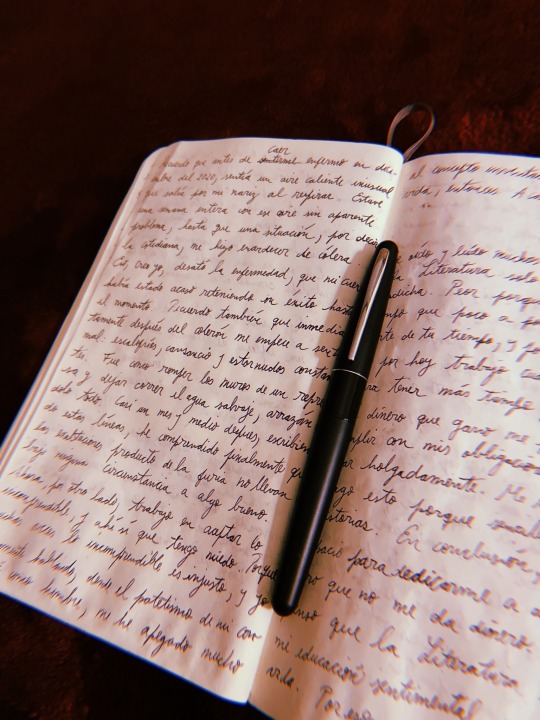 Caer
Recuerdo que antes de enfermo en dici-
embre del 2020, sentía un aire caliente inusual
que salía por mi nariz al respirar. Estuve
una semana entera con ese aire sin aparente
problema, hasta que una situación, por decir
la cotidiana, me hizo enardecer de cólera.
Eso, creo yo, desató la enfermedad, que mi cuer
había estado acaso reteniendo con éxito hasta
el momento. Recuerdo también que inmedia
tamente después del colerón me empecé a sent
mal: escalofríos, cansancio y estornudos constan
tes. Fue como romper los muros de un repr
sa y dejar correr el agua salvaje, arrazan
dolo todo. Casi un mes y medio después, escribien
do estas líneas, he comprendido finalmente qu
las exaltaciones producto de la furia no llevan
bajo ninguna circunstancia a algo bueno.
por otro lado, trabajo en aceptar lo
incomprensible, y ahí sí que tengo miedo. Porque
lo incomprensible es injusto, y yo
hablando, desde el patetismo de mi con
lumbre, me he apegado mucho
al concepto
vida, entonces. A
oído y leído mucho
la Literatura solo
dicha. Peor porque
que poco a po
te de tu tiempo, y
por hoy, trabajo
ra tener más tiempo
dinero que gano me
plir con mis obligacion
holgadamente. Me
go esto porque
storias. En conclusión
para dedicarme a
que no me da dinero.
nso que la Literatura
mi educación sentimental
vida.
Por eso